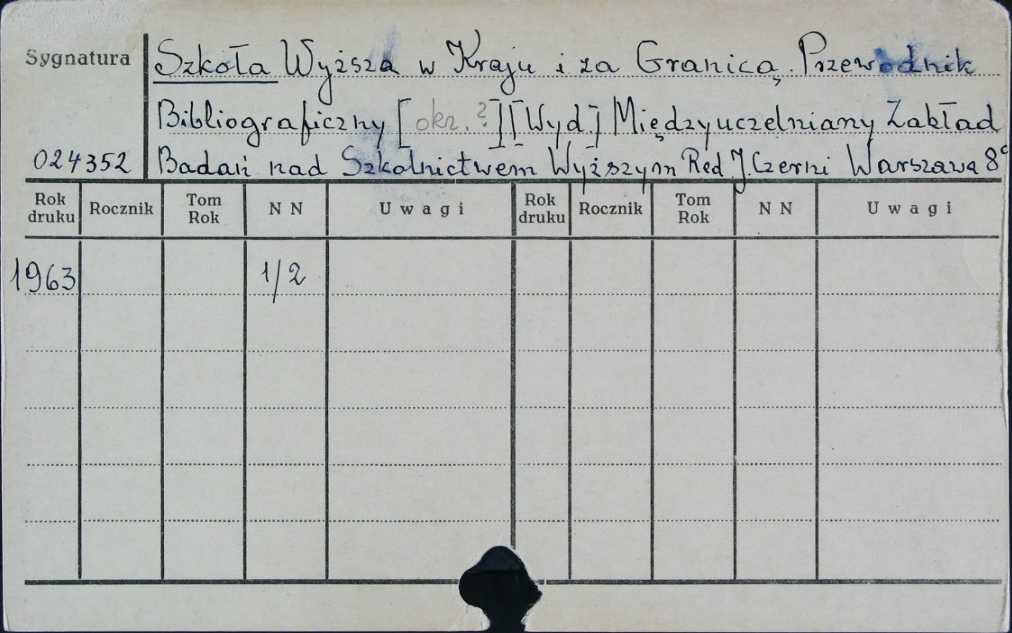 Sygnatura
Szkoła Wyższa w Kraju i za Granicą. Przewodnik
Bibliograficzny [okr. ?] [Wyd.] Międzyuczelniany Zakład
024352 Badań nad Szkolnictwem Wyższym Red J. Czerni Warszawa 8°
Rok druku Rocznik Tom Rok N N Uwagi Rok druku Rocznik Tom Rok N N Uwagi
1963 1/2